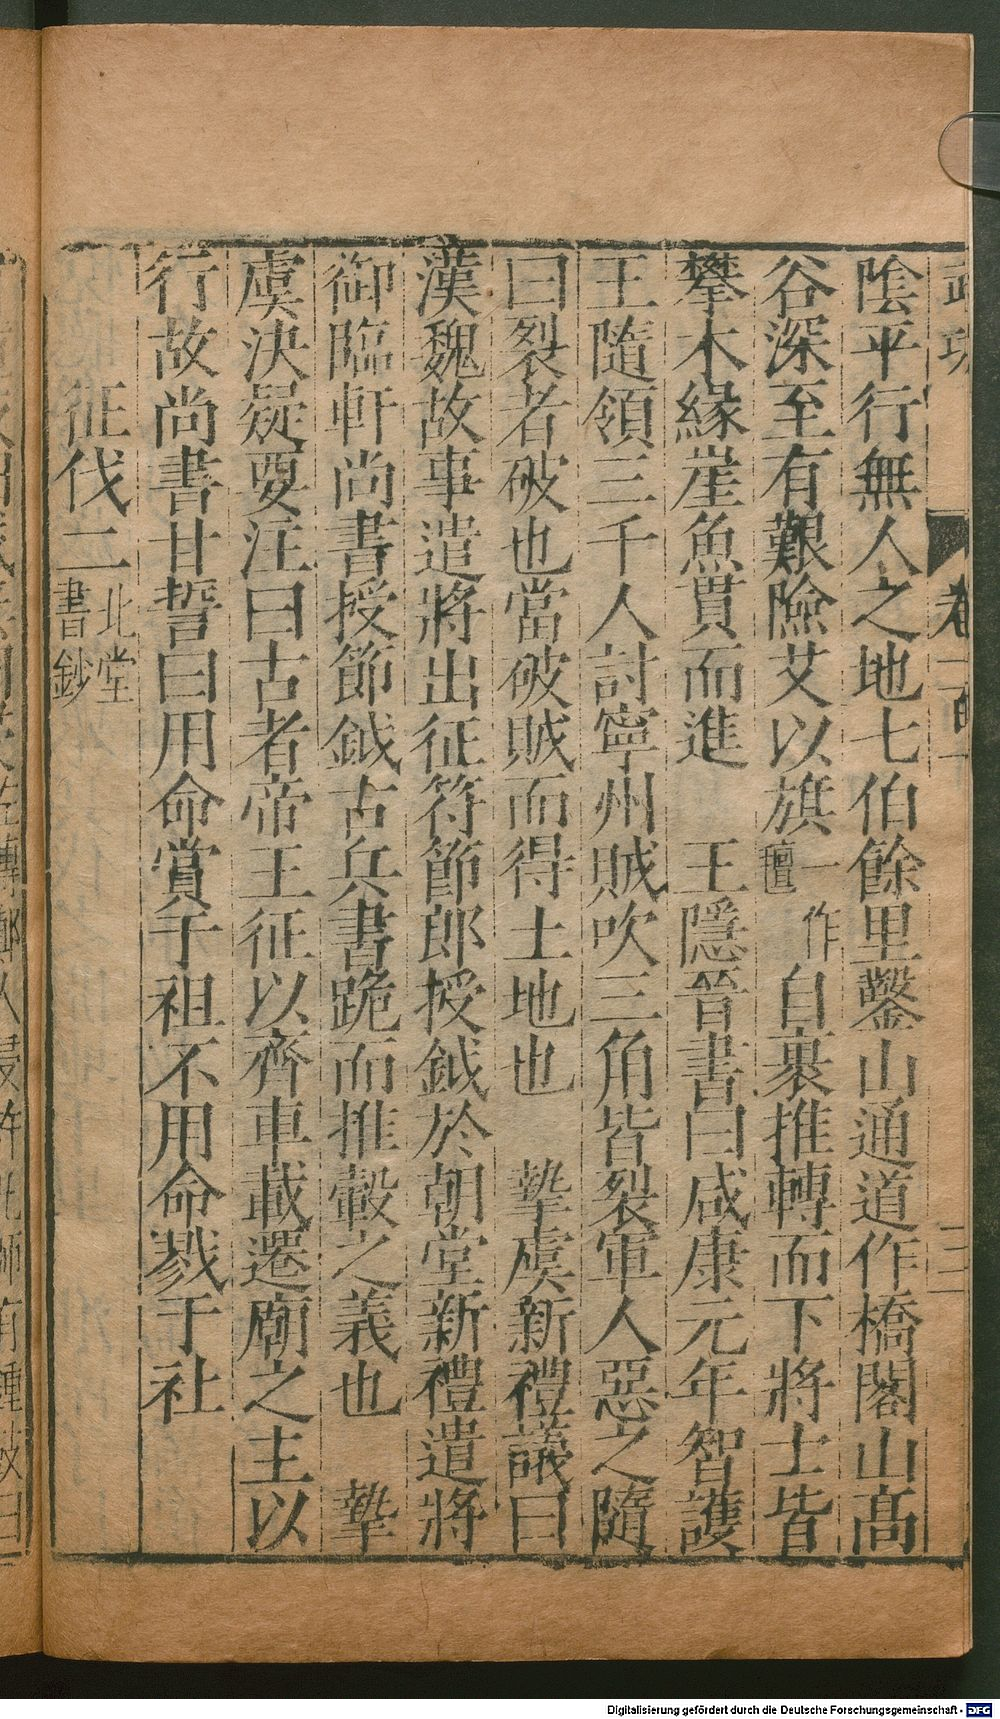 陰平行無人之地七伯餘里鑿山通道作橋閣山髙
谷深至有艱險艾以旗一作氊自裹推轉而下將士皆
攀木緣崖魚貫而進　王隱晉書曰咸康元年智護
王隨領三千人討寧州賊吹三角皆裂軍人惡之隨
曰裂者破也當破賊而得土地也　摯虞新禮議曰
漢魏故事遣將出征符節郎授鉞於朝堂新禮遣將
御臨軒尚書授節鉞古兵書跪而推轂之義也　摯
虞決疑要注曰古者帝王征以齊車載遷廟之主以
行故尚書甘誓曰用命賞于祖不用命戮于社
征伐二北堂書鈔
Digitalisierung gefördert durch die Deutsche Forschungsgemeinschaft - DFG